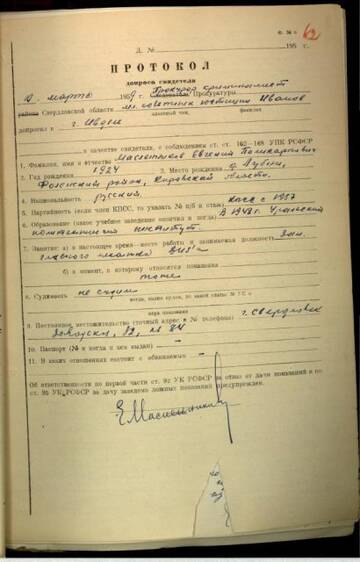 Ф. № 6
62
Д. № 195 г.
ПРОТОКОЛ
допроса свидетеля
марта 1959 г. Прокурор криминалист Прокуратуры
Свердловской области мл. советник юстиции Иванов
классный чин, фамилия
допросил в г. Ивдель
в качестве свидетеля, с соблюдением ст. ст. 162—168 УПК РСФСР
1. Фамилия, имя и отчество Масленников Евгений Поликарпович
2. Год рождения 1924 3. Место рождения д.
район, Кировской области.
4. Национальность русский.
5. Партийность (если член КПСС, то указать № п/б и стаж) КПСС с 1957
6. Образование (какое учебное заведение окончил и когда) В 1948 г. Уральский
политехнический институт.
7. Занятие: а) в настоящее время—место работы и занимаемая должность Зам.
главного механика ВИЗ'а
б) в момент, к которому относятся показания
тоже
8. Судимость не судим
когда, каким судом, по какой статье УК и
мера наказания
9. Постоянное местожительство (точный адрес и № телефона) г. Свердловск
82, 84
10. Паспорт (№ и когда и кем выдан) —
11. В каких отношениях состоит с обвиняемым —
Об ответственности по первой части ст. 92 УК РСФСР за отказ от дачи показаний и по
ст. 95 УК РСФСР за дачу заведомо ложных показаний предупрежден.
Е. Масленников